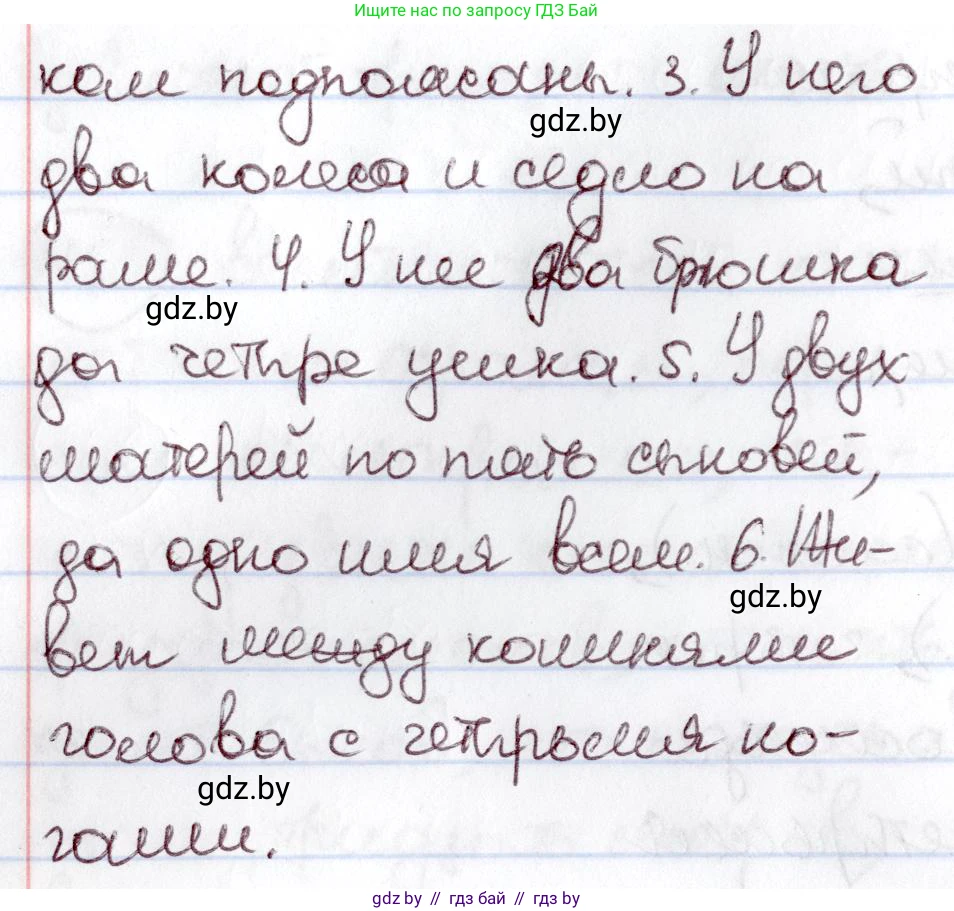 Ищите нас по запросу ГДЗ Бай
ком подпоясаны. 3. У него
gdz.by
два колеса и седло на
раме. 4. У нее два брюшка
gdz.by
да четыре ушка. 5. У двух
матерей по пять сыновей,
да одно имя всем. 6. Жи-
gdz.by
вет между камнями
голова с четырьмя но-
gdz.by
гами.
gdz.by // гдз бай // гдз by